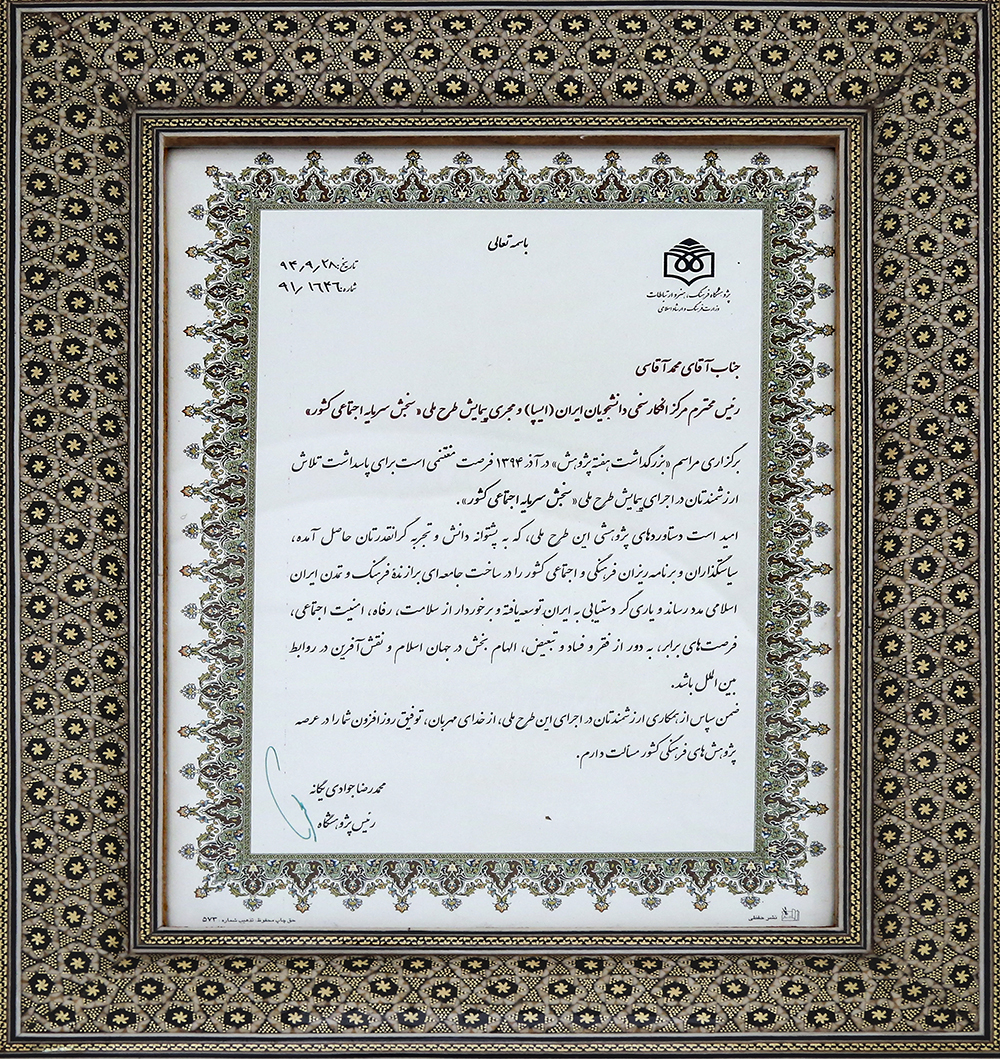 باسمه تعالی
تاریخ: ۹۴٫۹٫۲۸
شماره: ۹۱٫۱۶۴۶
پژوهشگاه فرهنگ، هنر و ارتباطات
وزارت فرهنگ و ارشاد اسلامی
جناب آقای محمد آقاسی
رئیس محترم مرکز افکارسنجی دانشجویان ایران (ایسپا) و مجری پیمایش طرح ملی «سنجش سرمایه اجتماعی کشور»
برگزاری مراسم «بزرگداشت هفته پژوهش» در آذر ۱۳۹۴ فرصت مغتنمی است برای پاسداشت تلاش
ارزشمندتان در اجرای پیمایش طرح ملی «سنجش سرمایه اجتماعی کشور».
امید است دستاوردهای پژوهشی این طرح ملی، که به پشتوانه دانش و تجربه گرانقدرتان حاصل آمده،
سیاستگذاران و برنامه ریزان فرهنگی و اجتماعی کشور را در ساخت جامعه ای برازندهٔ فرهنگ و تمدن ایران
اسلامی مدد رساند و یاری گر دستیابی به ایران توسعه یافته و برخوردار از سلامت، رفاه، امنیت اجتماعی،
فرصت های برابر، به دور از فقر و فساد و تبعیض، الهام بخش در جهان اسلام و نقش آفرین در روابط
بین الملل باشد.
ضمن سپاس از همکاری ارزشمندتان در اجرای این طرح ملی، از خدای مهربان، توفیق روزافزون شما را در عرصه
پژوهش های فرهنگی کشور مسألت دارم.
محمدرضا جوادی یگانه
رئیس پژوهشگاه
نشر حقیقی
حق چاپ محفوظ، تذهیب شماره: ۵۷۳